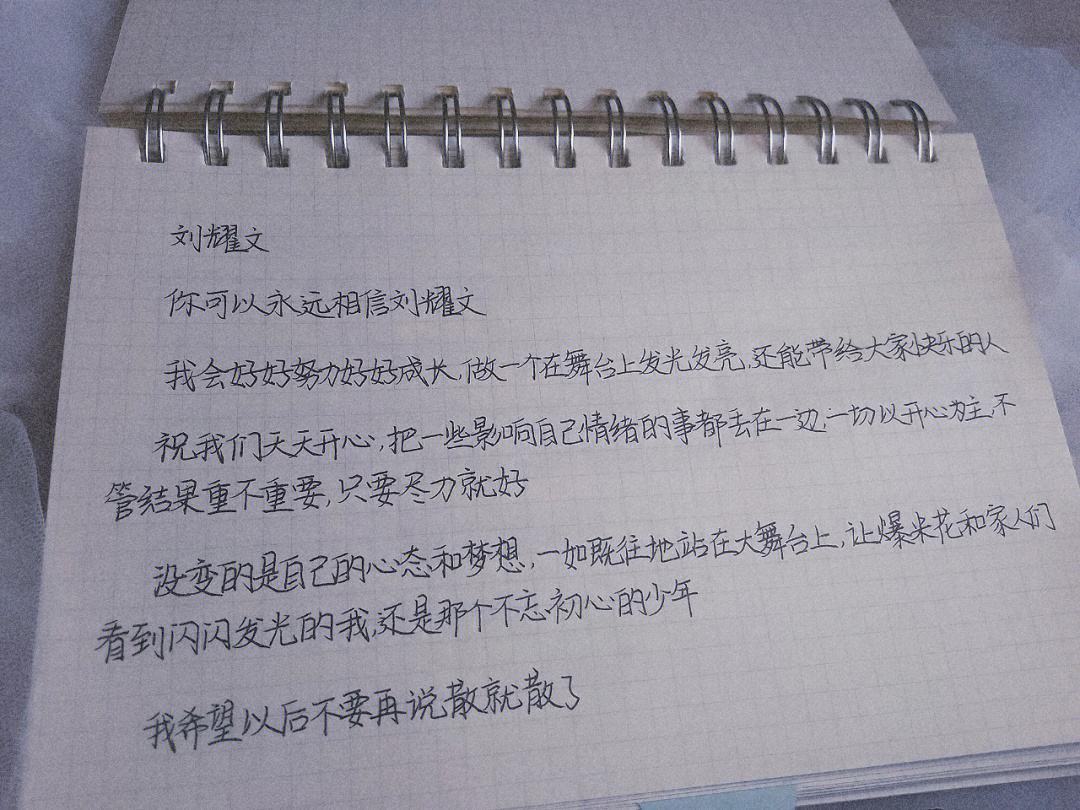 刘耀文
你可以永远相信刘耀文
我会好好努力好好成长,做一个在舞台上发光发亮,还能带给大家快乐的人
祝我们天天开心,把一些影响自己情绪的事都丢在一边,一切以开心为主,不
管结果重不重要,只要尽力就好
没变的是自己的心态和梦想,一如既往地站在大舞台上,让爆米花和家人们
看到闪闪发光的我,还是那个不忘初心的少年
我希望以后不要再说散就散了